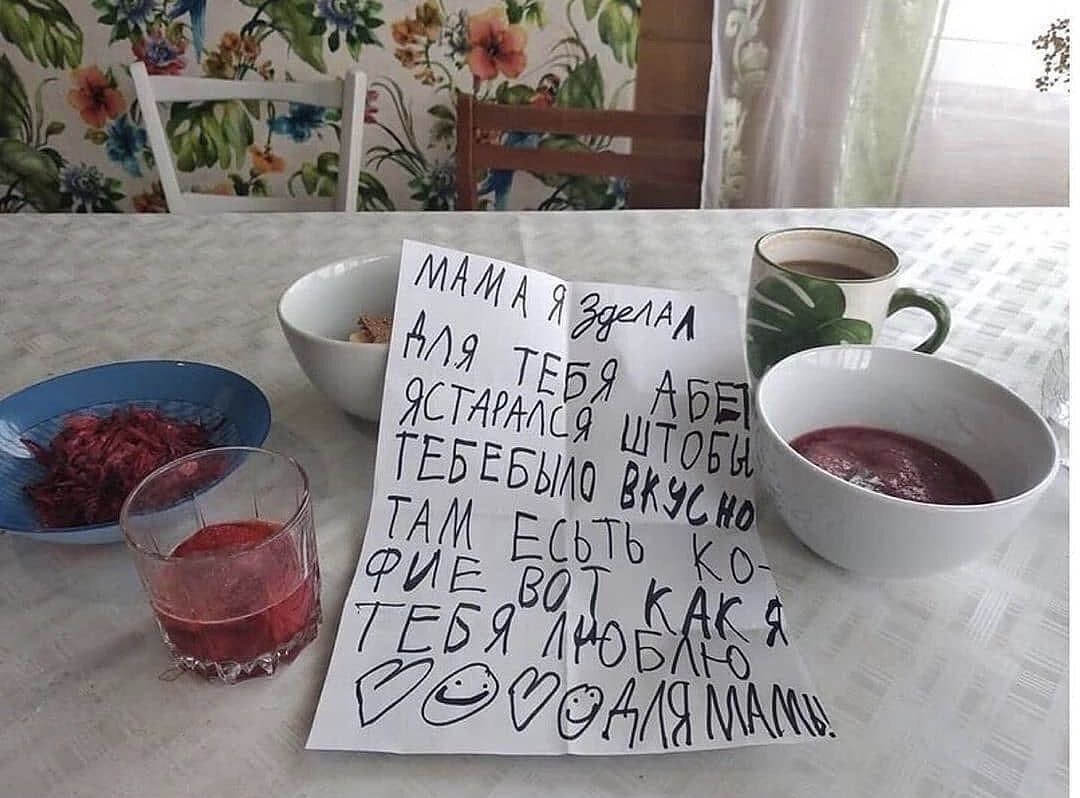 МАМА Я ЗдЕЛАЛ
ДЛЯ ТЕБЯ АБЕТ
ЯСТАРАЛСЯ ШТОБЫ
ТЕБЕБЫЛО ВКУСНО
ТАМ ЕСЬТЬ КО-
ФИЕ ВОТ КАК Я
ТЕБЯ ЛЮБЛЮ
ДЛЯ МАМЫ!